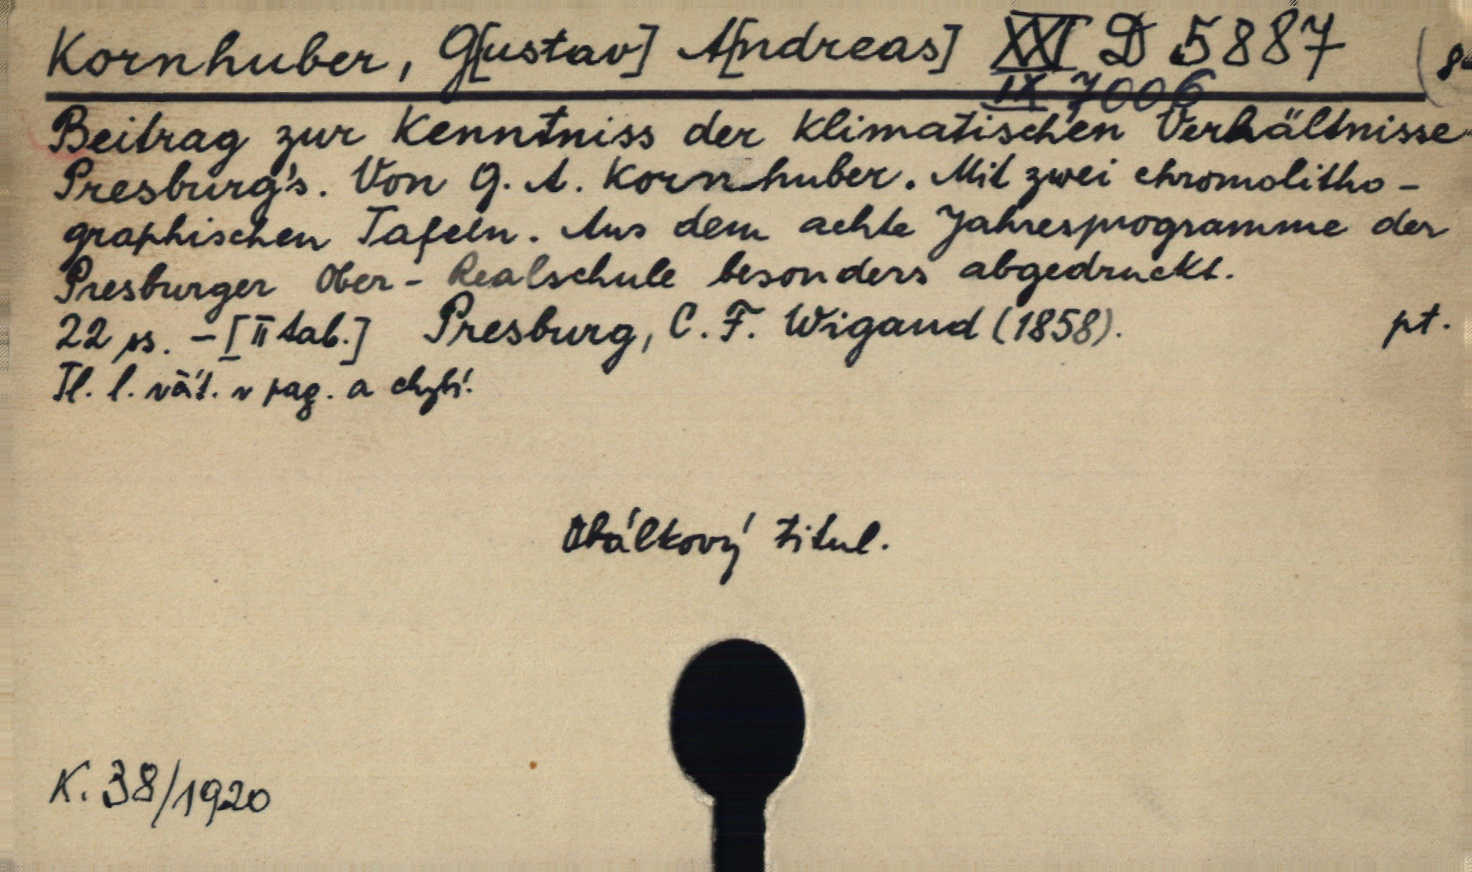 Kornhuber, G[ustav] A[ndreas] XXI D 5887 (8°
IX 7006
Beitrag zur Kenntniss der klimatischen Verhältnisse
Presburg's. Von G. A. Kornhuber. Mit zwei chromolitho-
graphischen Tafeln. Aus dem achte Jahresprogramme der
Presburger Ober-Realschule besonders abgedruckt.
22 ps. - [II tab.] Presburg, C. F. Wigand (1858). pt.
Tl. l. vát. v pag. a chybí.
Obálkový titul.
K. 38/1920